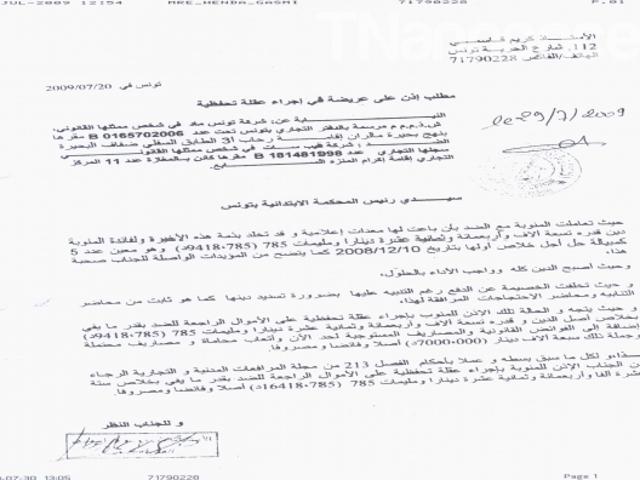 JUL-2009 12:54 MRE_HENDA_GASMI 71790228 P.01
TNa
الأستاذ كريم قاسمي
112، شارع الحرية تونس
الهاتف/الفاكس 71790228
تونس في 2009/07/20
مطلب إذن على عريضة في إجراء عقلة تحفظية
le 29/7/2009
النيابة عن: شركة تونس ماد في شخص ممثلها القانوني،
ش.ذ.م.م مرسمة بالدفتر التجاري بتونس تحت عدد B 0165702006 مقرها
بنهج بحيرة مالران إقامة رحاب 3ا الطابق السفلي ضفاف البحيرة
الضد: شركة سات في شخص ممثلها القانوني
سجلها التجاري عدد B 181481998 مقرها كائن بالمغازة عدد 11 المركز
التجاري إقامة إكرام المنزه الرابع.
سيدي رئيس المحكمة الابتدائية بتونس
حيث تعاملت المنوبة مع الضد بأن باعت لها معدات إعلامية و قد تخلد بذمة هذه الأخيرة ولفائدة المنوبة
دين قدره تسعة آلاف وأربعمائة وثمانية عشرة دينارا ومليمات 785 (9418،785د) وهو معين عدد 5
كمبيالة حل أجل خلاص أولها بتاريخ 2008/12/10 كما يتضح من المؤيدات الواصلة للجناب صحبة
هذا،
وحيث أصبح الدين كله وواجب الأداء بالحلول،
و حيث تخلفت الخصيمة عن الدفع رغم التنبيه عليها بضرورة تسديد دينها كما هو ثابت من محاضر
التنبيه ومحاضر الاحتجاجات المرافقة لهذا،
و حيث يتجه و الحالة تلك الإذن للمنوب بإجراء عقلة تحفظية على الأموال الراجعة للضد بقدر ما يفي
بخلاص أصل الدين و قدره تسعة آلاف وأربعمائة وثمانية عشرة دينارا ومليمات 785 (9418،785د)
إضافة إلى الفوائض القانونية والمصاريف المستوجبة لحد الآن وأتعاب محاماة و مصاريف محتملة
وجملة ذلك سبعة آلاف دينار (7000،000د) أصلا وفائضا ومصروفا.
لذا، ولكل ما سبق بسطه و عملا بأحكام الفصل 213 من مجلة المرافعات المدنية و التجارية الرجاء
من الجناب الإذن للمنوبة بإجراء عقلة تحفظية على الأموال الراجعة للضد بقدر ما يفي بخلاص ستة
عشرة ألفا وأربعمائة وثمانية عشرة دينارا ومليمات 785 (16418،785د) أصلا وفائضا ومصروفا.
و للجناب النظر
-07-30 13:05 71790228 Page 1